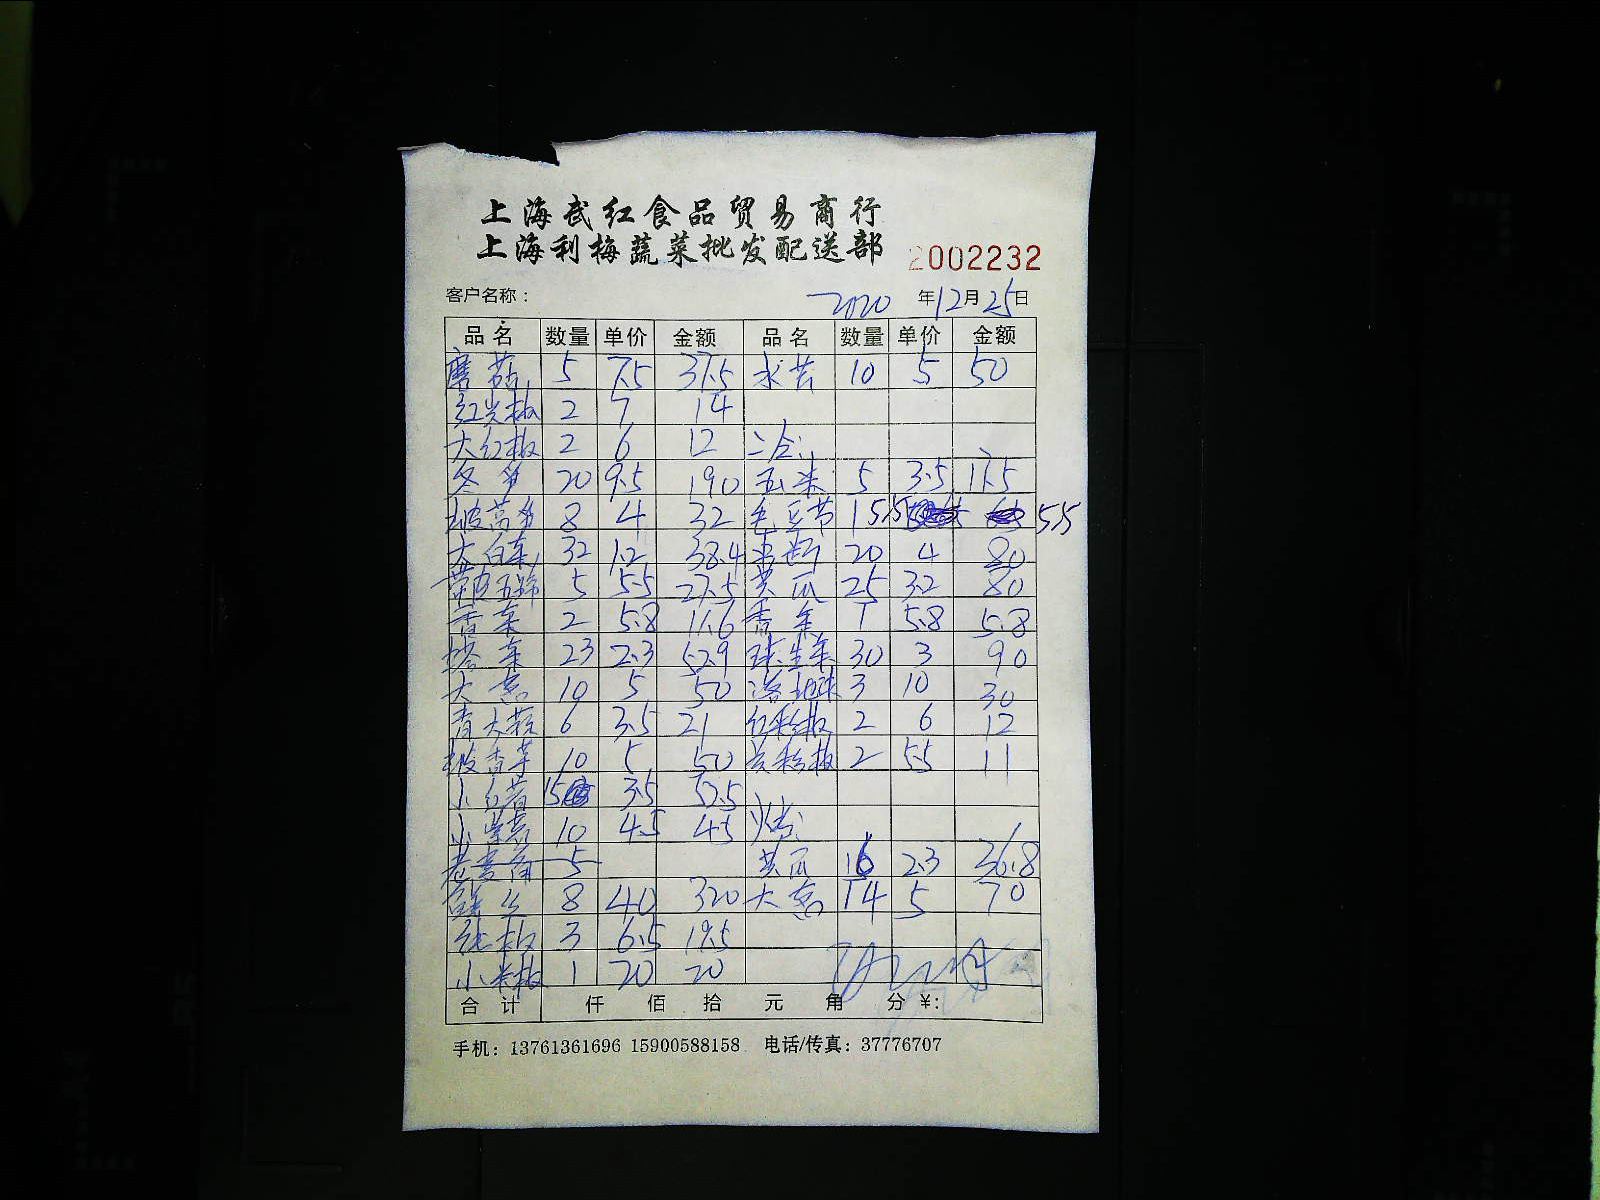 上海武红食品贸易商行
上海利梅蔬菜批发配送部 2002232
客户名称： 2020 年 12 月 25 日
品名 数量 单价 金额 品名 数量 单价 金额
磨菇 5 7.5 37.5 水芹 10 5 50
红尖椒 2 7 14
大红椒 2 6 12
冬 20 9.5 190 玉米 5 3.5 17.5
8 4 32 毛豆节 1 55
大白菜 32 1.2 38.4 20 4 80
带皮 5 5.5 27.5 黄瓜 25 3.2 80
香菜 2 5.8 11.6 香菜 1 5.8 5.8
塔菜 23 2.3 52.9 球生菜 30 3 90
大葱 10 5 50 3 10 30
青大蒜 6 3.5 21 红彩椒 2 6 12
10 5 50 黄彩椒 2 5.5 11
小红薯 15 3.5 52.5
小紫薯 10 4.5 45
老姜 5 黄瓜 16 2.3 36.8
8 40 320 大葱 14 5 70
3 6.5 19.5
小米椒 1 20 20
合计 仟 佰 拾 元 角 分 ¥:
手机：13761361696 15900588158 电话/传真：37776707